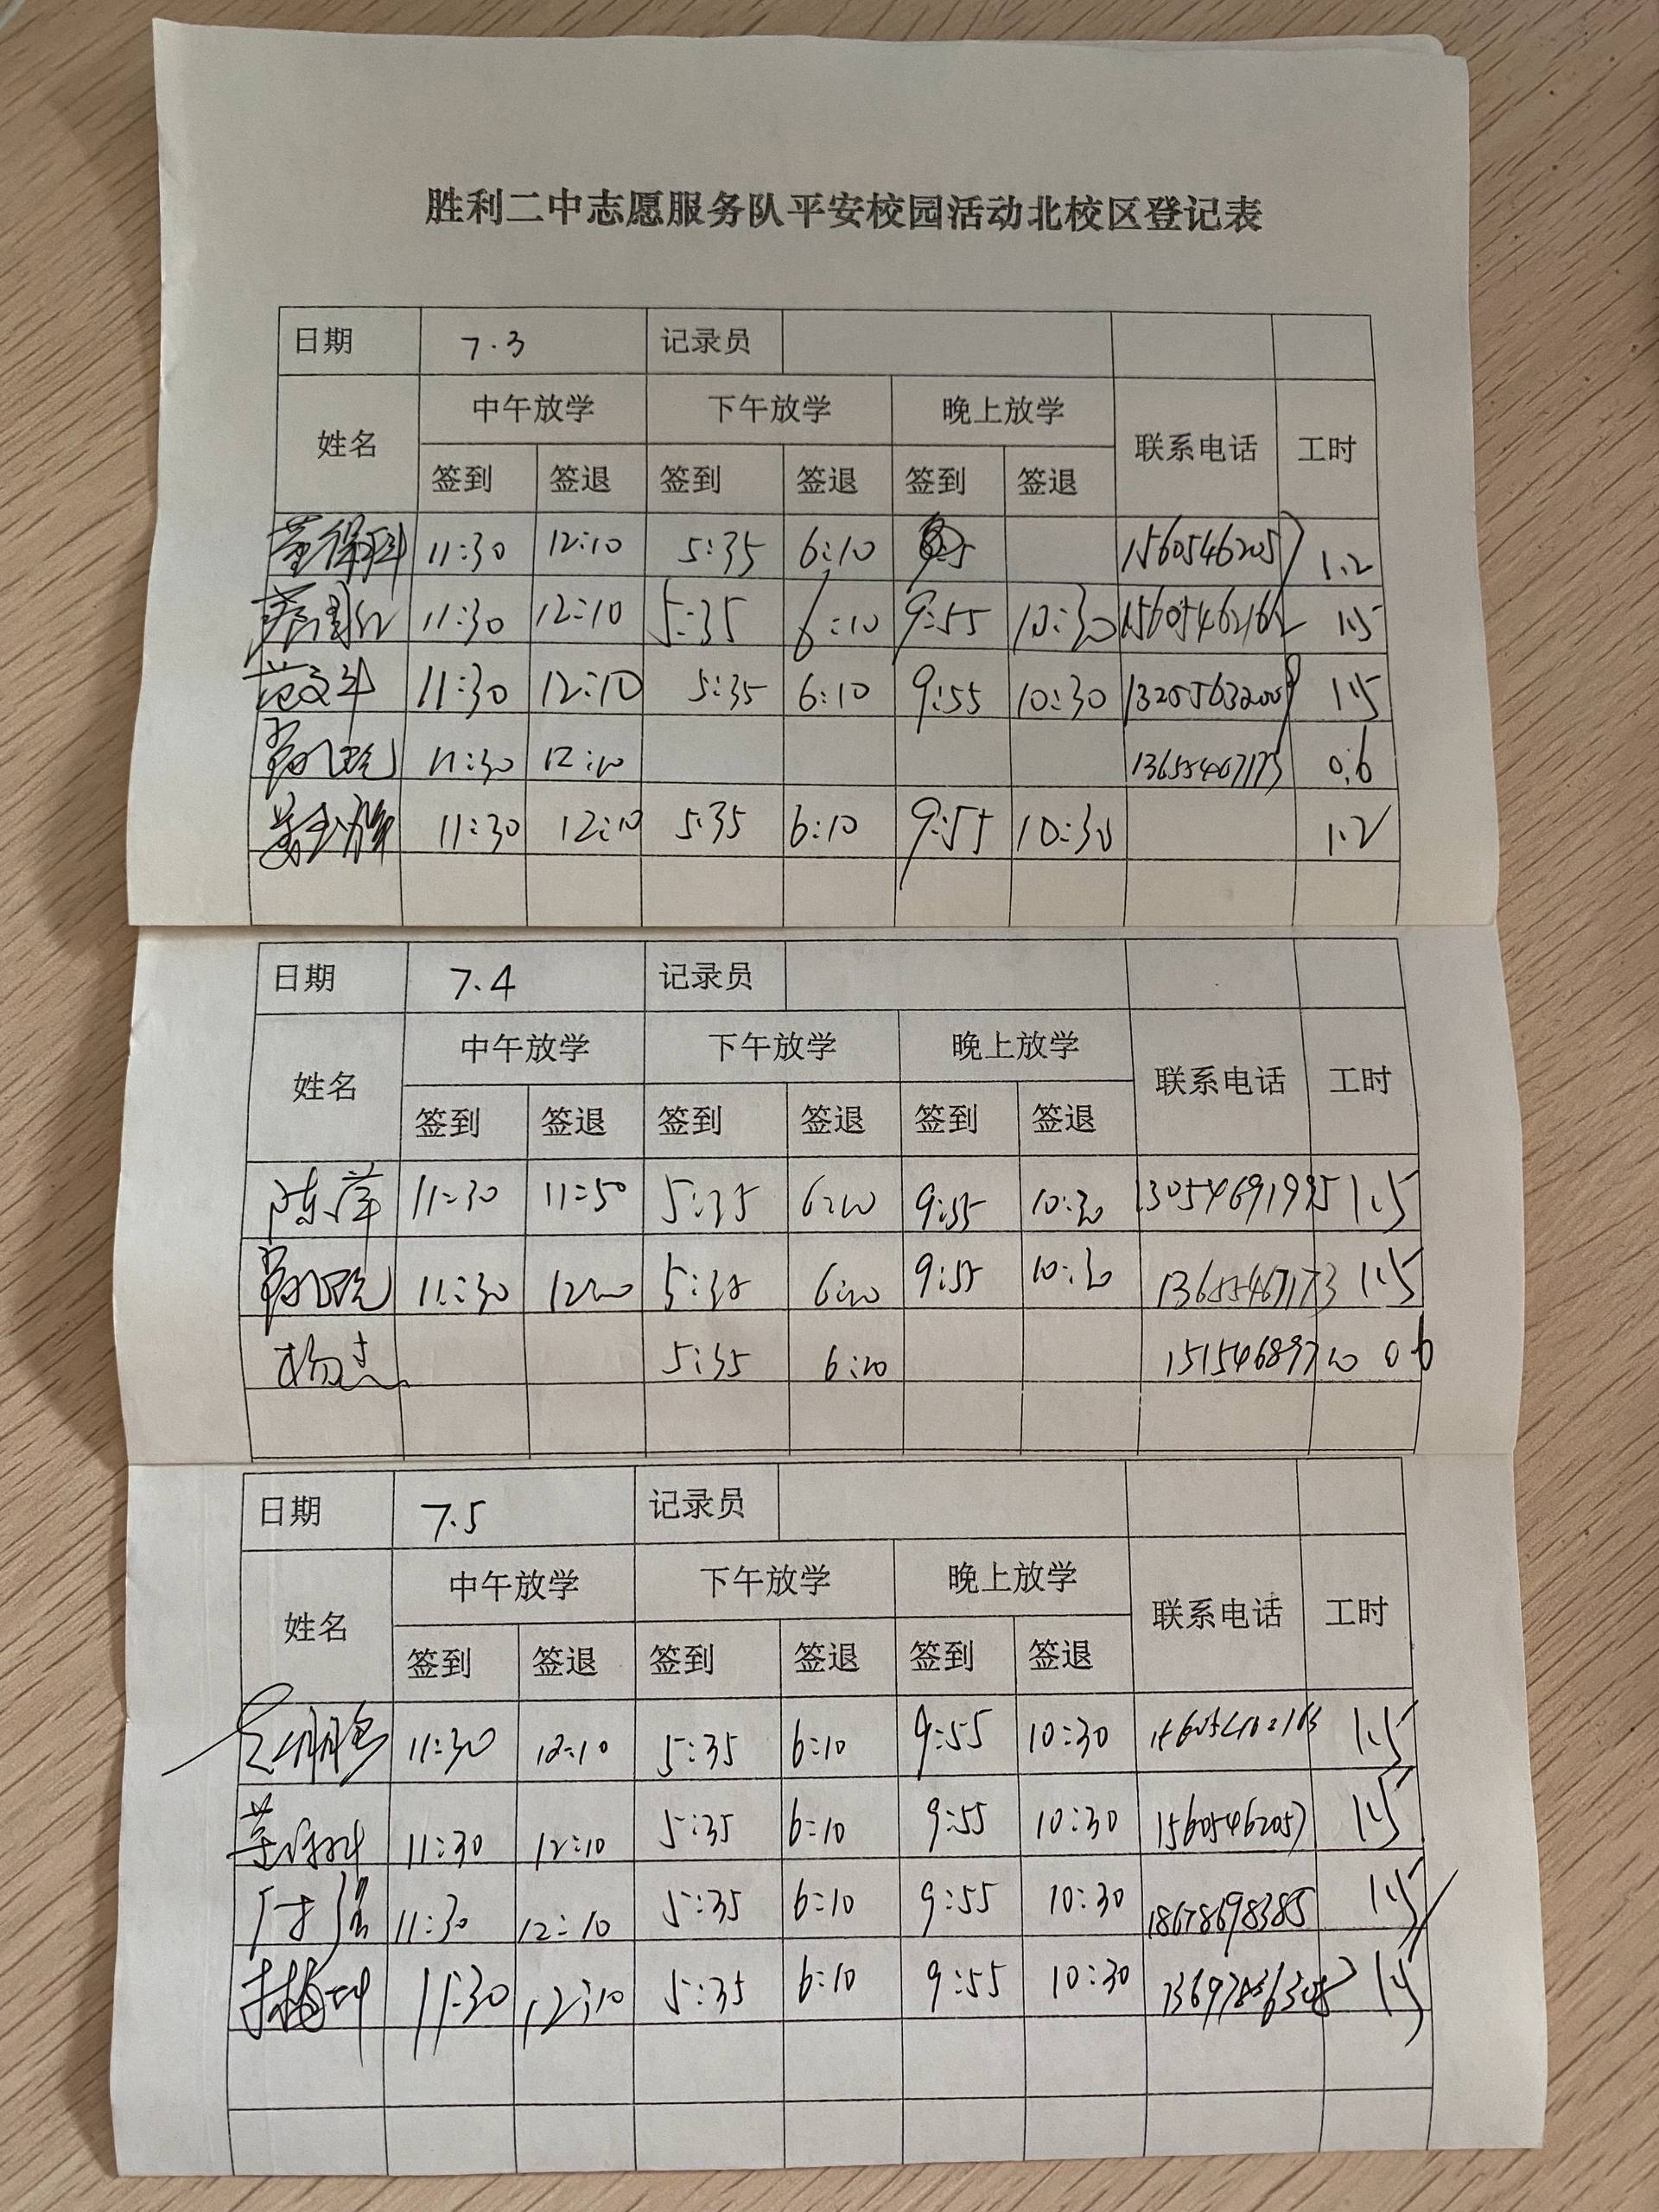 胜利二中志愿服务队平安校园活动北校区登记表
日期 7.3 记录员
姓名 中午放学 下午放学 晚上放学 联系电话 工时
签到 签退 签到 签退 签到 签退
11:30 12:10 5:35 6:10 15605462057 1.2
11:30 12:10 5:35 6:10 9:55 10:30 15605462162 1.5
范文华 11:30 12:10 5:35 6:10 9:55 10:30 13255632009 1.5
11:30 12:10 13655467173 0.6
11:30 12:10 5:35 6:10 9:55 10:30 1.2
日期 7.4 记录员
姓名 中午放学 下午放学 晚上放学 联系电话 工时
签到 签退 签到 签退 签到 签退
陈萍 11:30 11:50 5:35 6:10 9:55 10:30 13054691995 1.5
11:30 12:00 5:35 6:10 9:55 10:30 13655467173 1.5
杨志 5:35 6:10 0.6
日期 7.5 记录员
姓名 中午放学 下午放学 晚上放学 联系电话 工时
签到 签退 签到 签退 签到 签退
11:30 12:10 5:35 6:10 9:55 10:30 1.5
11:30 12:10 5:35 6:10 9:55 10:30 15605462057 1.5
11:30 12:10 5:35 6:10 9:55 10:30 18678698385 1.5
11:30 12:10 5:35 6:10 9:55 10:30 1.5